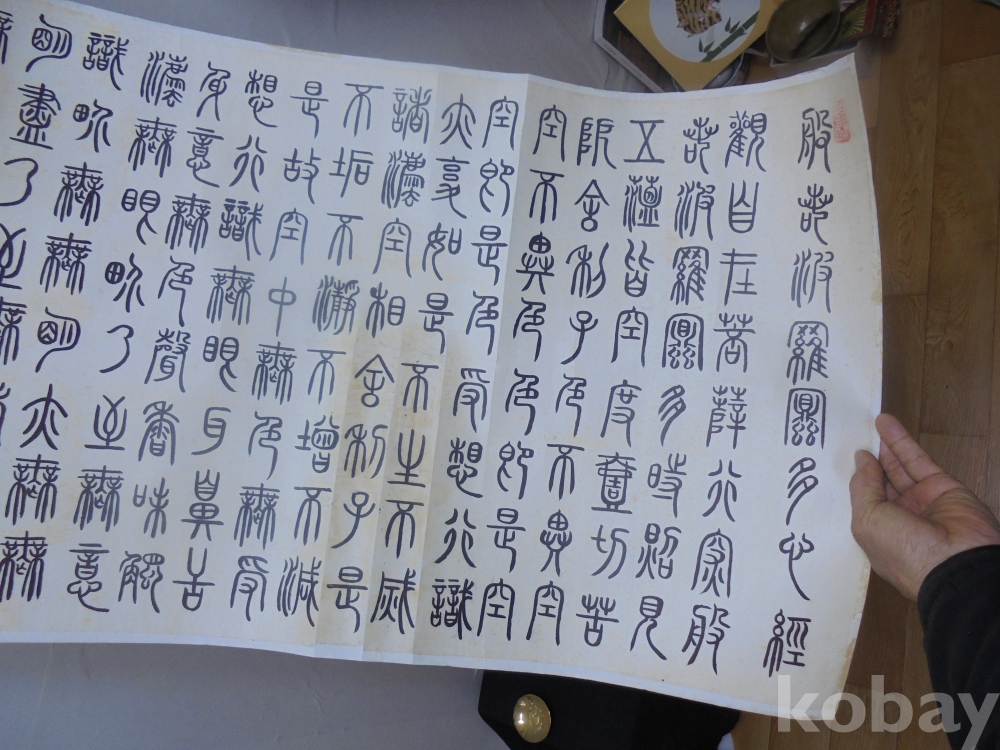 般若波羅蜜多心經
觀自在菩薩行深般
若波羅蜜多時照見
五薀皆空度壹切苦
阨舍利子色不異空
空不異色色即是空
空即是色受想行識
亦复如是不生不滅
諸灋空相舍利子是
不垢不瀞不增不減
是故空中無色無受
想行識無眼耳鼻舌
身意無色聲香味觸
灋無眼界乃至無意
識界無無明亦無無
明盡乃至無
kobay